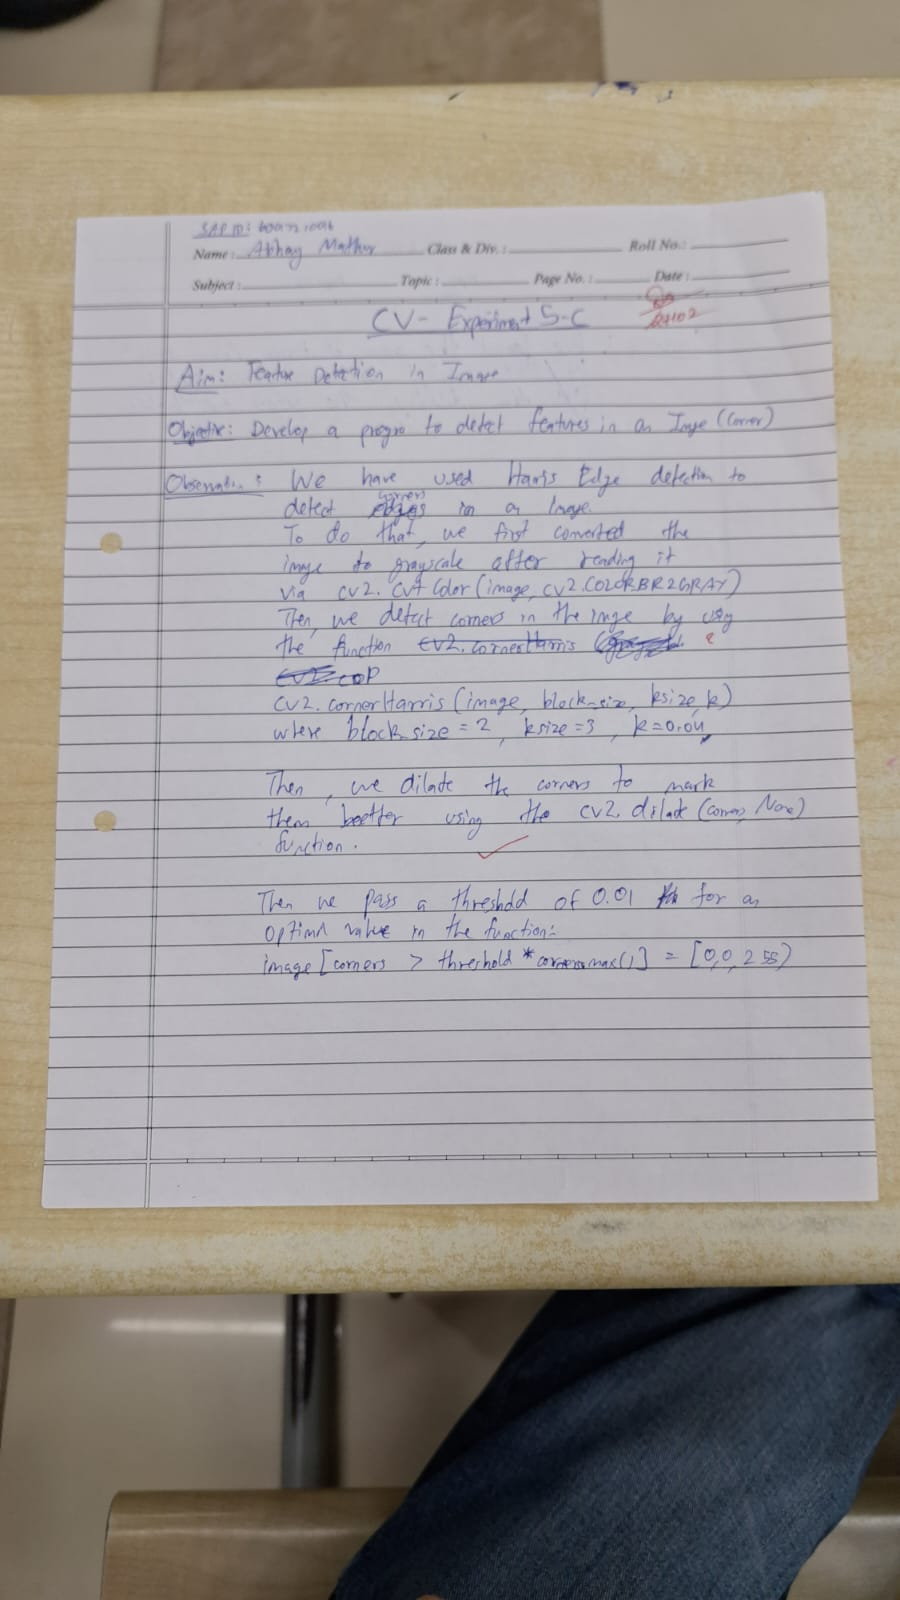 SAP ID:
Name: Abhay Mathur Class & Div.: Roll No.:
Subject: Topic: Page No.: Date:
CV- Experiment 5-C
Aim: Featur Detection in Image
Objective: Develop a progra to detect features in an Image (Corner)
Observation: We have used Harris Edge detection to
detect corners in an Image.
To do that, we first converted the
image to grayscale after reading it
via cv2. Cvt Color (image, cv2.COLORBR2GRAY)
Then, we detect corners in the image by using
the function cv2.cornerHarris
cv2.cornerHarris (image, block_size, ksize, k)
where block_size = 2, ksize = 3, k=0.04,
Then, we dilate the corners to mark
them beetter using the cv2. dilate (corners, None)
function.
Then we pass a threshold of 0.01 for an
optimal value in the function:
image [corners > threshold * corners.max()] = [0,0,255)